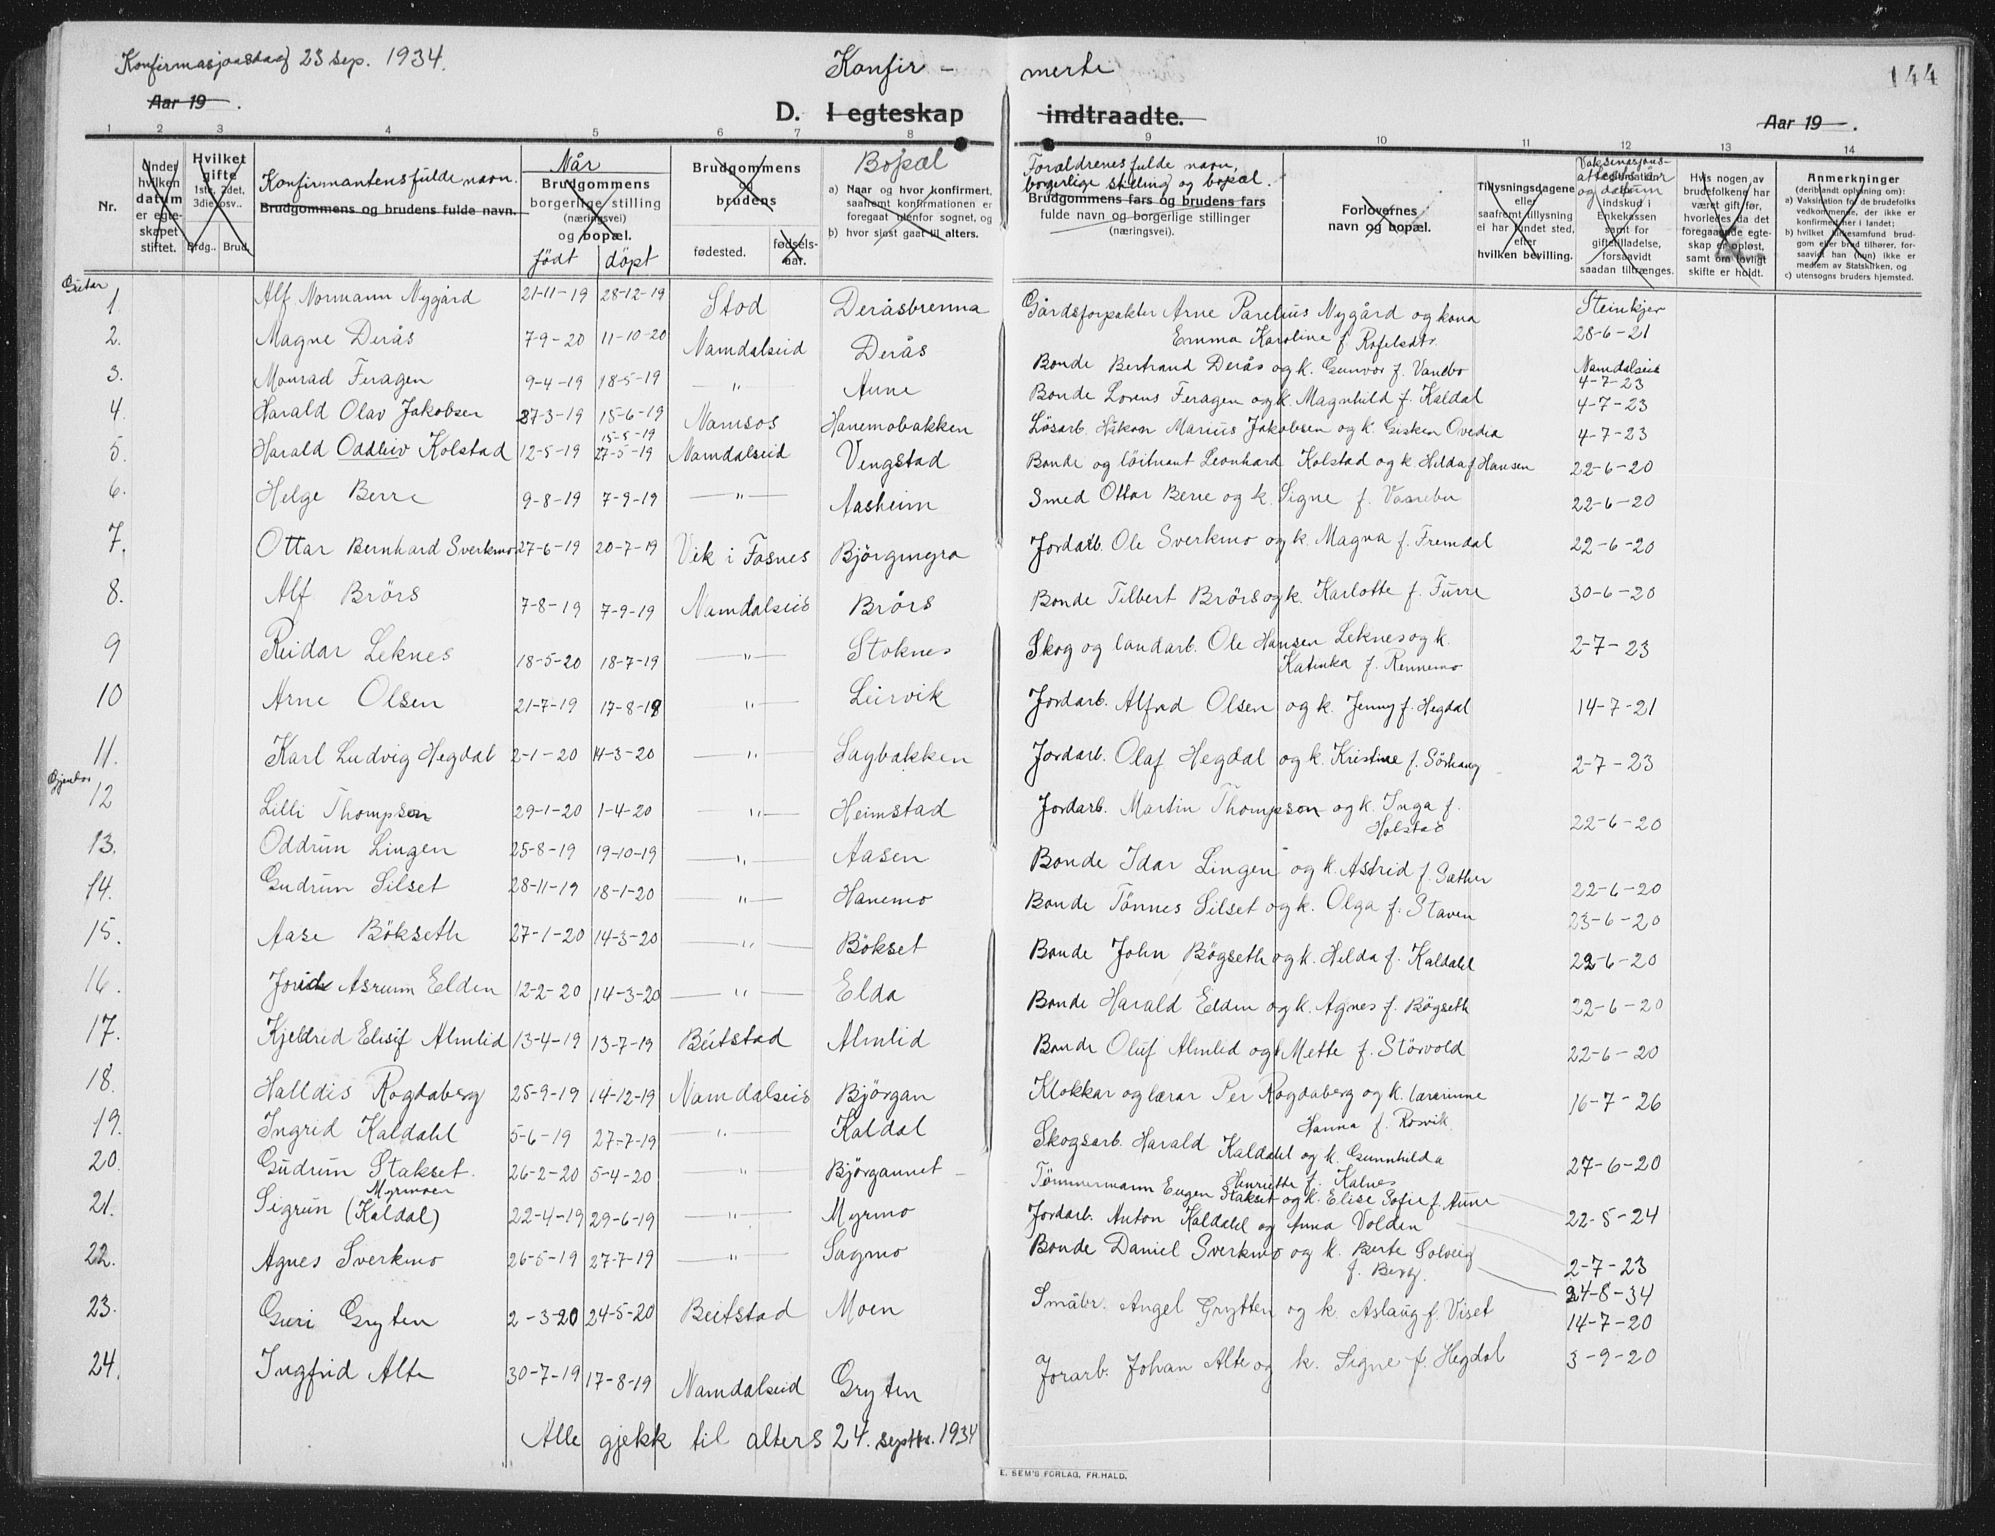 Konfirmasjonsdag 23 sep. 1934.
Konfir - merte
144
Aar 19 .
D. I egteskap indtraadte.
Aar 19 .
1 2 3 4 5 6 7 8 9 10 11 12 13 14
Nr.
Under hvilken datum er egteskapet stiftet.
Hvilket gifte 1ste, 2det, 3die osv..
Brdg.. Brud.
Konfirmantens fulde navn.
Brudgommens og brudens fulde navn.
Når
Brudgommens borgerlige stilling (næringsvei) og bopæl.
født døpt
Brudgommens og brudens
fødested. fødsels-aar.
Bopæl
a) Naar og hvor konfirmert, saafremt konfirmationen er foregaat utenfor sognet, og
b) hvor sidst gaat til alters.
Forældrenes fulde navn, borgerlige stilling og bopæl.
Brudgommens fars og brudens fars fulde navn og borgerlige stillinger (næringsvei).
Forlovernes navn og bopæl.
Tillysningsdagene eller saafremt tillysning ei har fundet sted, efter hvilken bevilling.
Vaksinasjonsattestens år og datum
indskud i Enkekassen samt for giftetilladelse, forsaavidt saadan tiltrænges.
Hvis nogen av brudefolkene har været gift før, hvorledes da det foregaaende egteskap er opløst, samt om lovligt skifte er holdt.
Anmerkninger
(deriblandt oplysning om):
a) Vaksination for de brudefolks vedkommende, der ikke er konfirmert her i landet;
b) hvilket kirkesamfund brudgom eller brud tilhører, forsaavidt han (hun) ikke er medlem av Statskirken, og
c) utensogns bruders hjemsted.
Gutar
1 Alf Normann Nygård 21-11-19 28-12-19 Stod Deråsbrenna Gårdsforpakter Arne Parelius Nygård og kona Steinkjer
Emma Karoline f. Rofelsdtr. 28-6-21
2. Magne Derås 7-9-20 11-10-20 Namdalseid Derås Bonde Bertrand Derås og k. Gunvor f. Vandbo Namdalseid 4-7-23
3. Monrad Feragen 9-4-19 18-5-19 —"— Aune Bonde Lorens Feragen og k. Magnhild f. Kaldal 4-7-23
4. Harald Olav Jakobsen 27-3-19 15-6-19 Namsos Hanemobakken Løsarb. Håkon Marius Jakobsen og k. Gisken Ovedia 4-7-23
15-5-19
5. Harald Oddleiv Kolstad 12-5-19 27-5-19 Namdalseid Vengstad Bonde og løitnant Leonhard Kolstad og k. Hilda f Hansen 22-6-20
6. Helge Berre 9-8-19 7-9-19 —"— Aasheim Smed Ottar Berre og k. Signe f. Vaarebu 22-6-20
7. Ottar Bernhard Sverkmo 27-6-19 20-7-19 Vik i Fosnes Bjørgmyra Jordarb. Ole Sverkmo og k. Magna f. Fremdal 22-6-20
8. Alf Brørs 7-8-19 7-9-19 Namdalseid Brørs Bonde Tilbert Brørs og k. Karlotte f. Furre 30-6-20
9 Reidar Leknes 18-5-20 18-7-19 —"— Stoknes Skog og landarb. Ole Hansen Leknes og k. 2-7-23
Katinka f. Rennemo
10 Arne Olsen 21-7-19 17-8-19 —"— Leirvik Jordarb. Alfred Olsen og k. Jenny f. Hegdal 14-7-21
11. Karl Ludvig Hegdal 2-1-20 14-3-20 —"— Sagbakken Jordarb. Olaf Hegdal og k. Kristine f. Sörhaug 2-7-23
Gjentor
12 Lilli Thompson 29-1-20 1-4-20 —"— Heimstad Jordarb. Martin Thompson og k. Inga f.
Holstad 22-6-20
13. Oddrun Lingen 25-8-19 19-10-19 —"— Aasen Bonde Idar Lingen og k. Astrid f. Sæther 22-6-20
14. Gudrun Silset 28-11-19 18-1-20 —"— Hanemo Bonde Tönnes Silset og k. Olga f. Staven 23-6-20
15. Aase Bökseth 27-1-20 14-3-20 —"— Bökset Bonde John Bøgseth og k. Helda f. Kaldahl 22-6-20
16. Jorid Asrunn Elden 12-2-20 14-3-20 —"— Elda Bonde Harald Elden og k. Agnes f. Bøgseth 22-6-20
17. Kjellrid Elisif Almlid 13-4-19 13-7-19 Beitstad Almlid Bonde Oluf Almlid og k Mette f. Størvold 22-6-20
18. Halldis Rogdaberg 25-9-19 14-12-19 Namdalseid Bjørgan Klokkar og lærar Per Rogdaberg og k. lærarinne
Hanna f. Rosvik 16-7-26
19. Ingrid Kaldahl 5-6-19 27-7-19 —"— Kaldal Skogsarb. Harald Kaldahl og k. Gunnhilda
Henriette f. Kalnes 27-6-20
20. Gudrun Stakset. 26-2-20 5-4-20 —"— Bjørgannet Tømmermann Eugen Stakset og k. Elise Sofie f. Aune 22-5-24
Myrmoen
21. Sigrun (Kaldal) 22-4-19 29-6-19 —"— Myrmo Jordarb. Anton Kaldahl og Anna Volden 2-7-23
22. Agnes Sverkmo 26-5-19 27-7-19 —"— Sagmo Bonde Daniel Sverkmo og k. Berte Solveig
f. Berg. 24-8-34
23. Guri Gryten 2-3-20 24-5-20 Beitstad Moen Småbr. Angel Grytten og k. Aslaug f. Viset 14-7-20
24. Ingfrid Alte 30-7-19 17-8-19 Namdalseid Gryten Jorarb. Johan Alte og k. Signe f. Hegdal 3-9-20
Alle gjekk til alters 24. septbr. 1934
E. SEM'S FORLAG, FR.HALD.